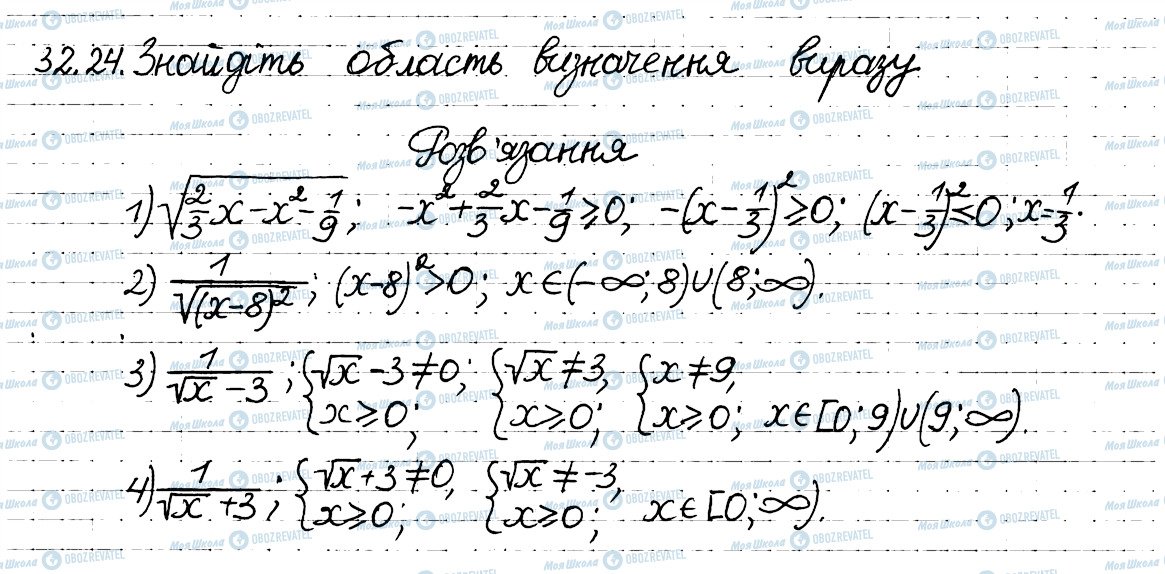 32.24. Знайдіть область визначення виразу
Розв'язання
1) √(2/3 x − x² − 1/9); −x² + 2/3 x − 1/9 ⩾ 0; −(x − 1/3)² ⩾ 0; (x − 1/3)² ⩽ 0; x = 1/3.
2) 1/√((x−8)²); (x−8)² > 0; x ∈ (−∞; 8) ∪ (8; ∞).
3) 1/(√x − 3); { √x − 3 ≠ 0, x ⩾ 0; { √x ≠ 3, x ⩾ 0; { x ≠ 9, x ⩾ 0; x ∈ [0; 9) ∪ (9; ∞).
4) 1/(√x + 3); { √x + 3 ≠ 0, x ⩾ 0; { √x ≠ −3, x ⩾ 0; x ∈ [0; ∞).
Моя Школа OBOZREVATEL